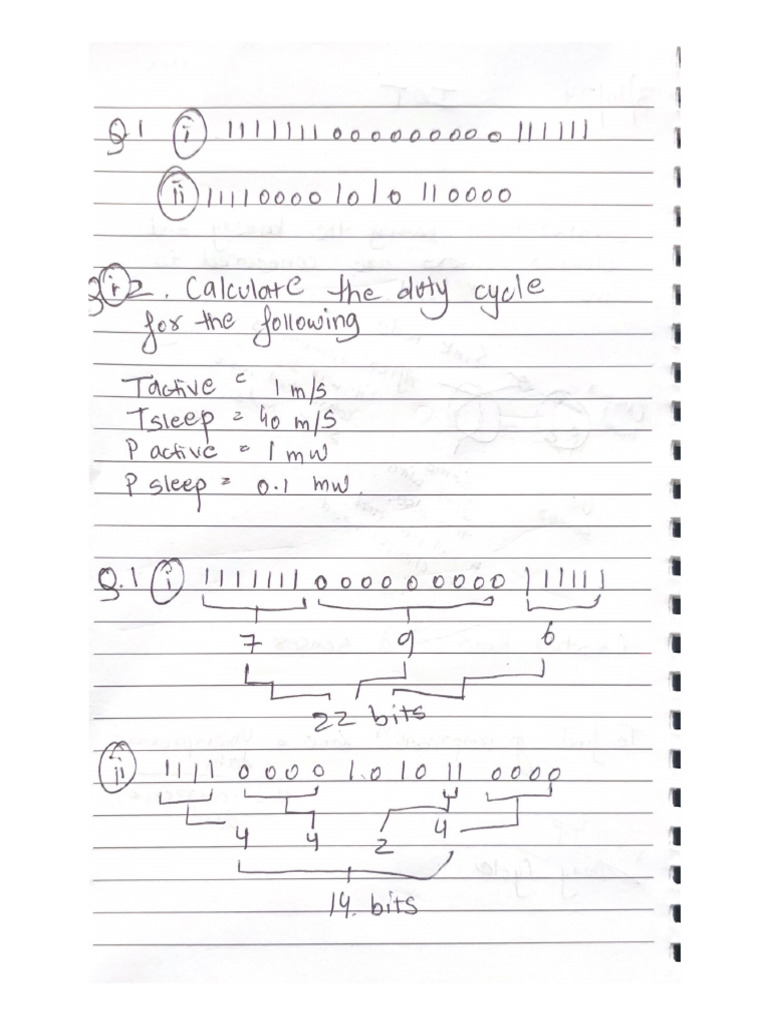 Q.1 i 1111111 000000000 111111
ii 1111 0000 1010 11 0000
2. Calculate the duty cycle
for the following
Tactive = 1 m/s
Tsleep = 40 m/s
P active = 1 mw
P sleep = 0.1 mw.
Q.1 i 1111111 000000000 111111
7 9 6
22 bits
ii 1111 0000 1010 11 0000
4 4 2 4
14. bits